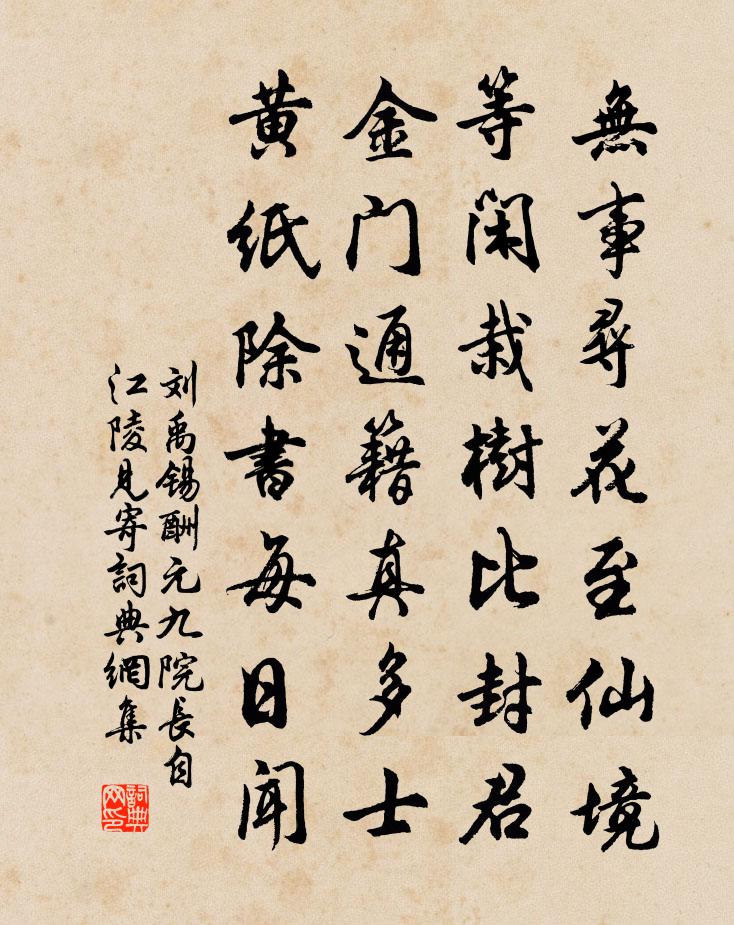 無事尋花至仙境
等閑栽樹比封君
金门通籍真多士
黃紙除書每日闻
刘禹锡酬元九院長自
江陵見寄詞典網集
詞典
网印